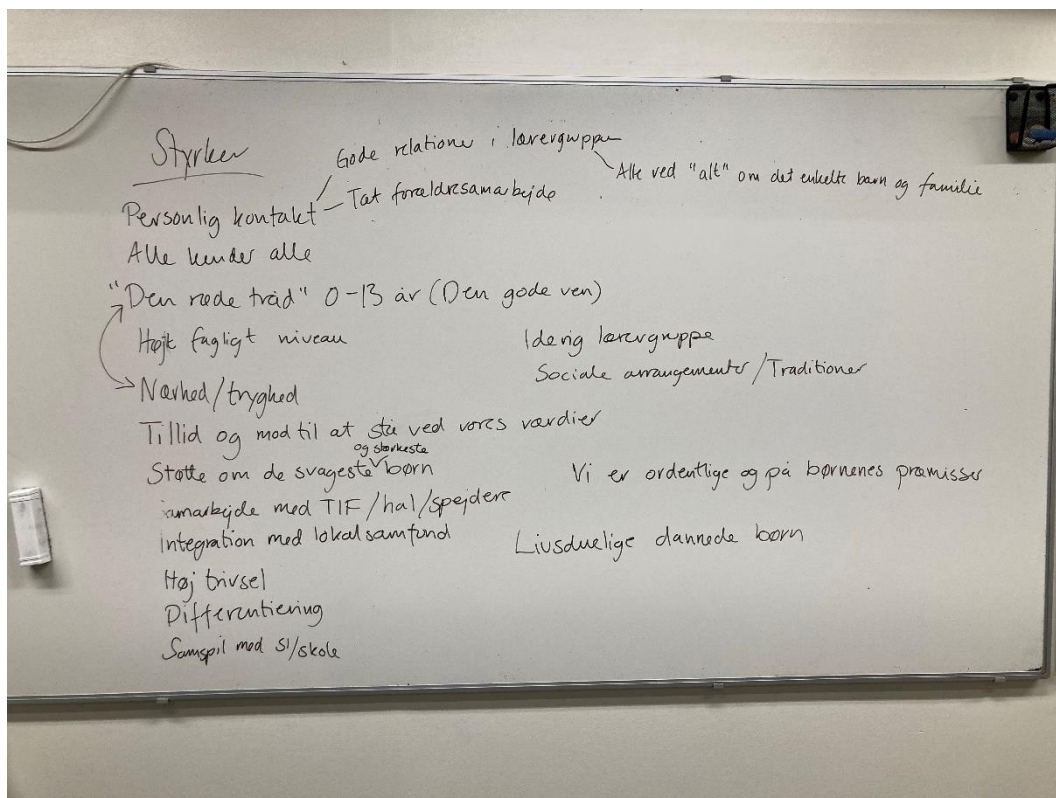 Styrker
Gode relationer i lærergruppe
Alle ved "alt" om det enkelte barn og familie
Personlig kontakt
Tæt forældresamarbejde
Alle kender alle
"Den røde tråd" 0-13 år (Den gode ven)
Højt fagligt niveau
Iderig lærergruppe
Sociale arrangementer/Traditioner
Nærhed/tryghed
Tillid og mod til at stå ved vores værdier
og stærkeste
Støtte om de svageste børn
Vi er ordentlige og på børnenes præmisser
amarbejde med TIF/hal/spejdere
integration med lokalsamfund
Livsduelige dannede børn
Høj trivsel
Differentiering
Samspil med SI/skole